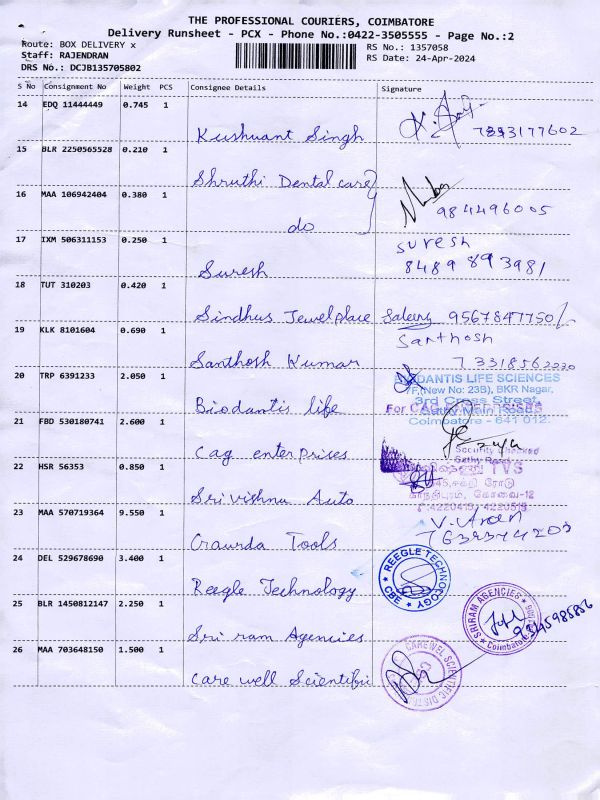 THE PROFESSIONAL COURIERS, COIMBATORE
Delivery Runsheet - PCX - Phone No.:0422-3505555 - Page No.:2
Route: BOX DELIVERY x
Staff: RAJENDRAN
DRS No.: DCJB135705802
RS No.: 1357058
RS Date: 24-Apr-2024
S No Consignment No Weight PCS Consignee Details Signature
14 EDQ 11444449 0.745 1
Kushwant Singh 7893177602
15 BLR 2250565528 0.210 1
Shruthi Dental care
16 MAA 106942404 0.380 1
do 984496005
17 IXM 506311153 0.250 1
Suresh suresh 8489893981
18 TUT 310203 0.420 1
Sindhus Jewelplace 9567847750/-
19 KLK 8101604 0.690 1
Santhosh Kumar Santhosh
73318562020
20 TRP 6391233 2.050 1
Biodantis life
BIODANTIS LIFE SCIENCES
7F,(New No: 23B), BKR Nagar,
3rd Cross Street,
Sathy Main Road,
Coimbatore - 641 012.
21 FBD 530180741 2.600 1
Cag enterprices
For CAG
Security Checked
22 HSR 56353 0.850 1
Sri vishnu Auto
TVS
சக்தி ரோடு
காந்திபுரம், கோவை-12
23 MAA 570719364 9.550 1
Craurda Tools
24 DEL 529678690 3.400 1
Reegle Technology
REEGLE TECHNOLOGY
CBE
25 BLR 1450812147 2.250 1
Sri ram Agencies
SRIRAM AGENCIES
Coimbatore
9345985856
26 MAA 703648150 1.500 1
Care well Scientific
CAREWEL SCIENTIFIC